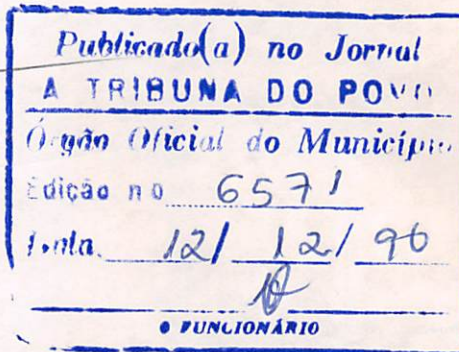 Publicado(a) no Jornal
A TRIBUNA DO POVO
Órgão Oficial do Município
Edição no 6571
Data. 12/ 12/ 96
O FUNCIONÁRIO